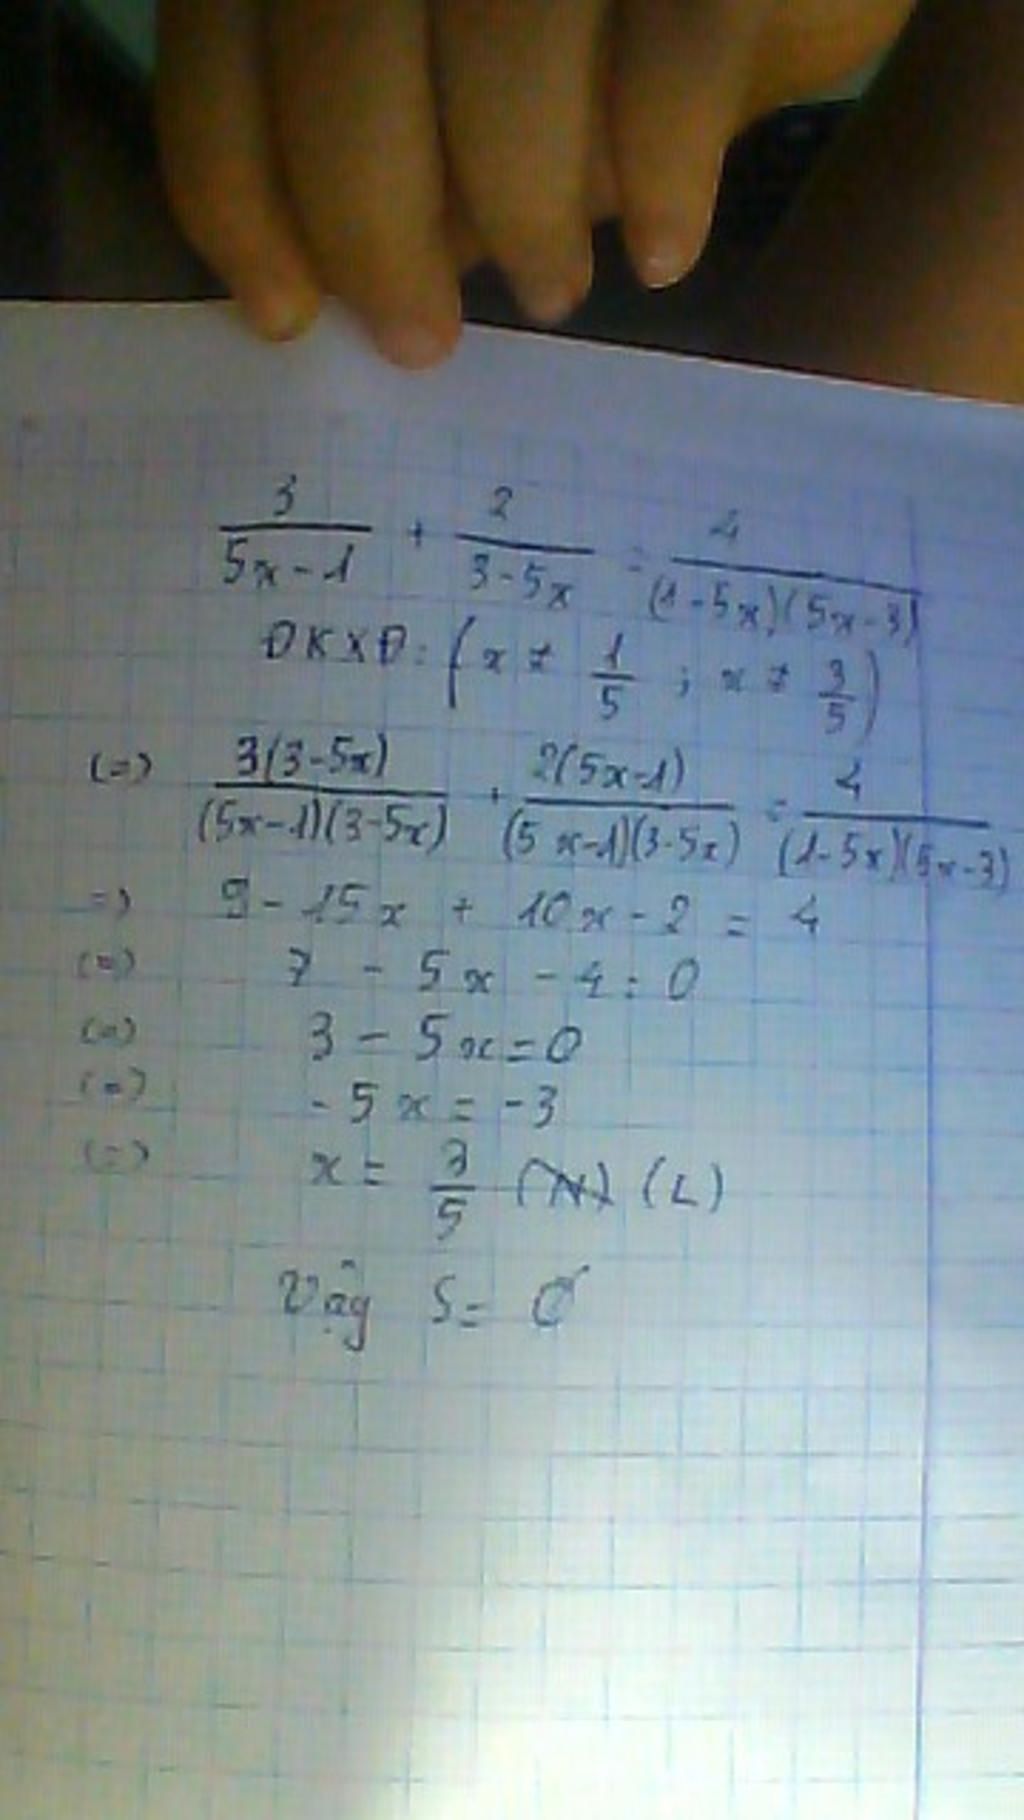 3/(5x-1) + 2/(3-5x) = 4/((1-5x)(5x-3))
ĐKXĐ: (x ≠ 1/5 ; x ≠ 3/5)
(=) 3(3-5x)/((5x-1)(3-5x)) + 2(5x-1)/((5x-1)(3-5x)) = 4/((1-5x)(5x-3))
=) 9 - 15x + 10x - 2 = 4
(=) 7 - 5x - 4 = 0
(=) 3 - 5x = 0
(=) -5x = -3
(=) x = 3/5 (N) (L)
Vậy S = Ø